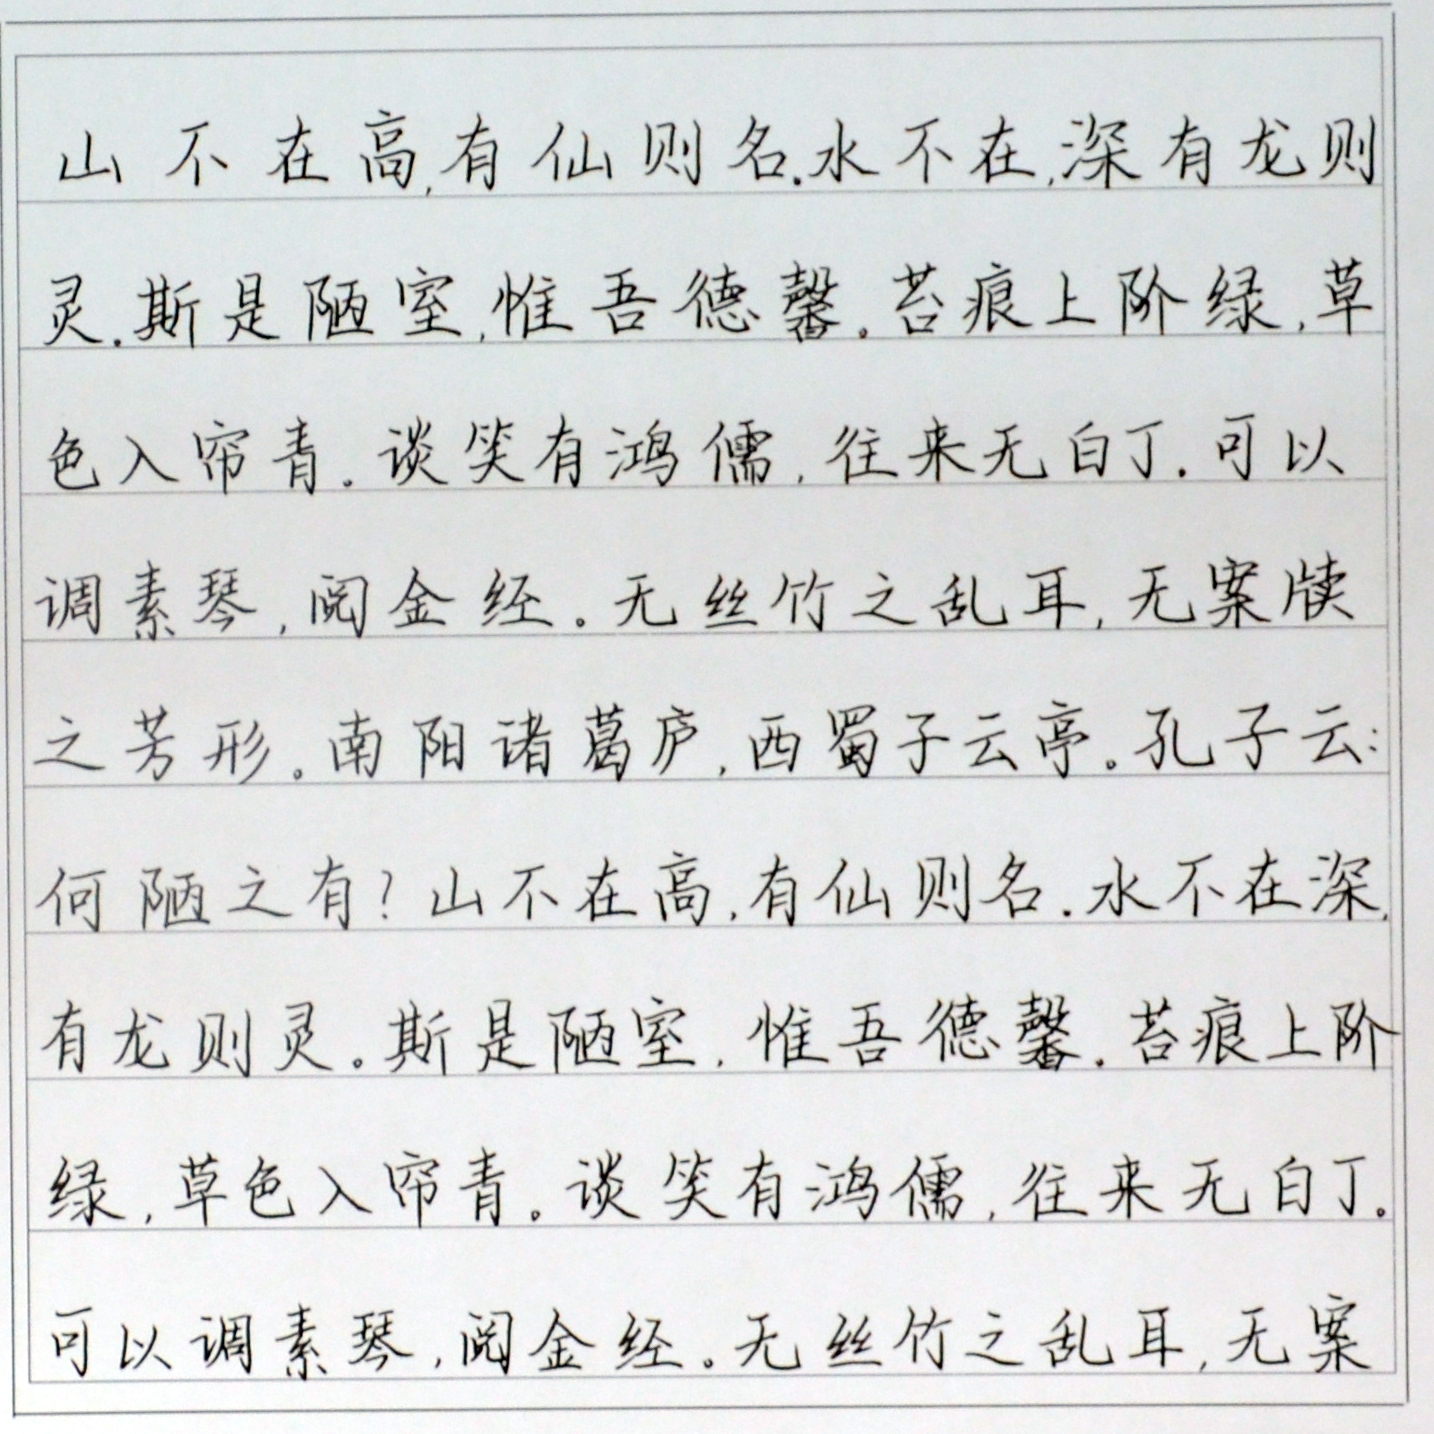 山不在高,有仙则名.水不在,深有龙则
灵.斯是陋室,惟吾德馨。苔痕上阶绿,草
色入帘青。谈笑有鸿儒,往来无白丁.可以
调素琴,阅金经。无丝竹之乱耳,无案牍
之劳形。南阳诸葛庐,西蜀子云亭。孔子云:
何陋之有?山不在高,有仙则名.水不在深,
有龙则灵。斯是陋室,惟吾德馨.苔痕上阶
绿,草色入帘青。谈笑有鸿儒,往来无白丁。
可以调素琴,阅金经。无丝竹之乱耳,无案